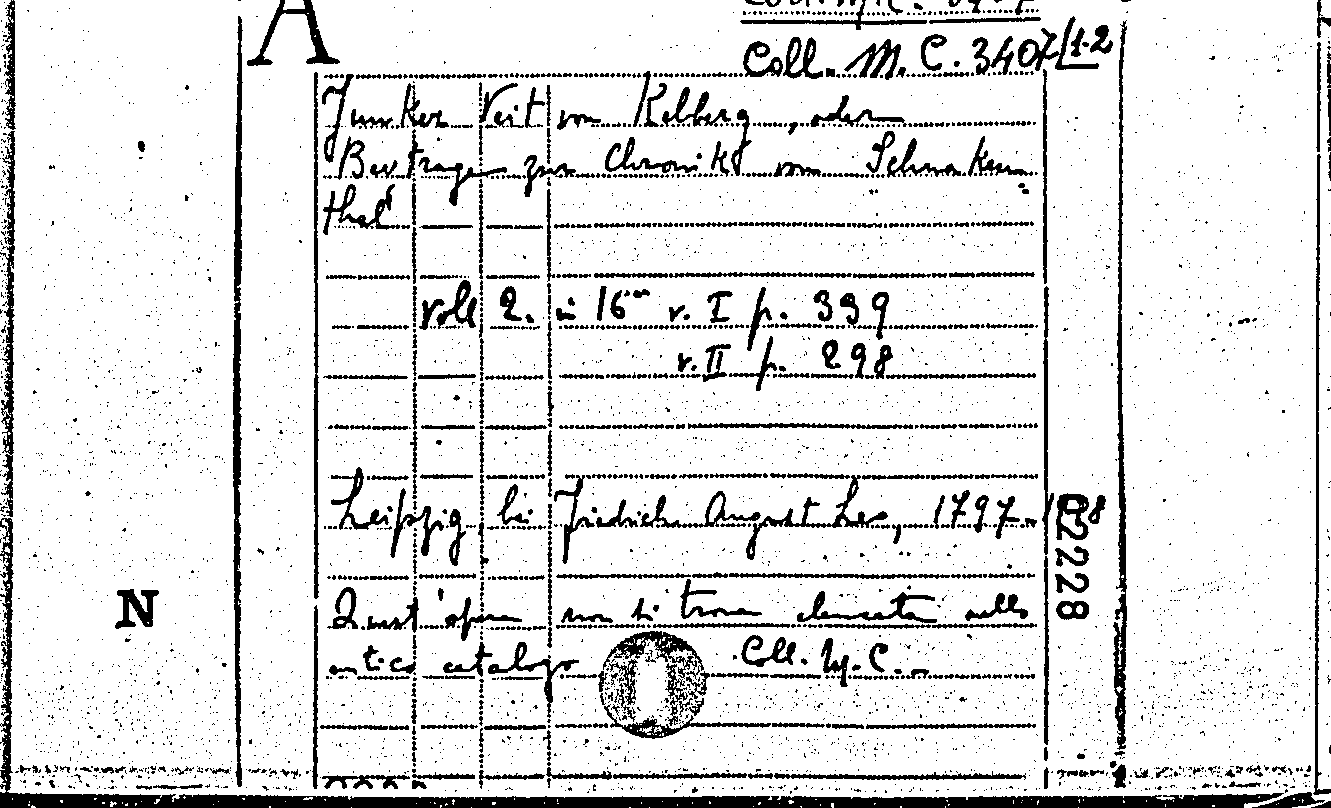 A
Coll. M.C. 3407
Coll. M. C. 3407/1-2
Junker Veit von Kelberg, oder
Beytrage zur Chronik von Schnaken
thal
voll 2. in 16mo v. I p. 339
v. II p. 298
Leipzig, bei Fiedrich August Leo, 1797-1798
02228
N
Quest'opera non si trova elencata nello
antico catalogo Coll. M.C.